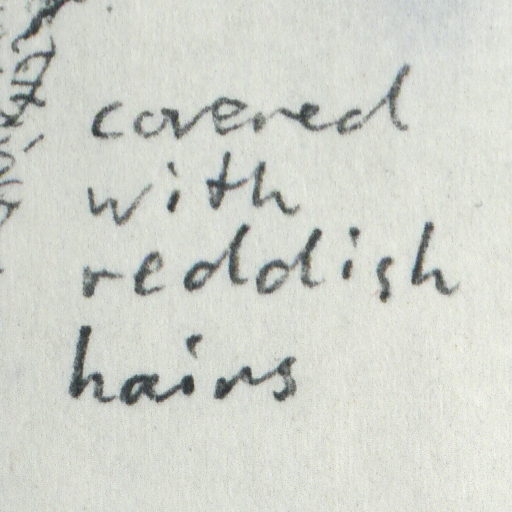 covered
with
reddish
hairs